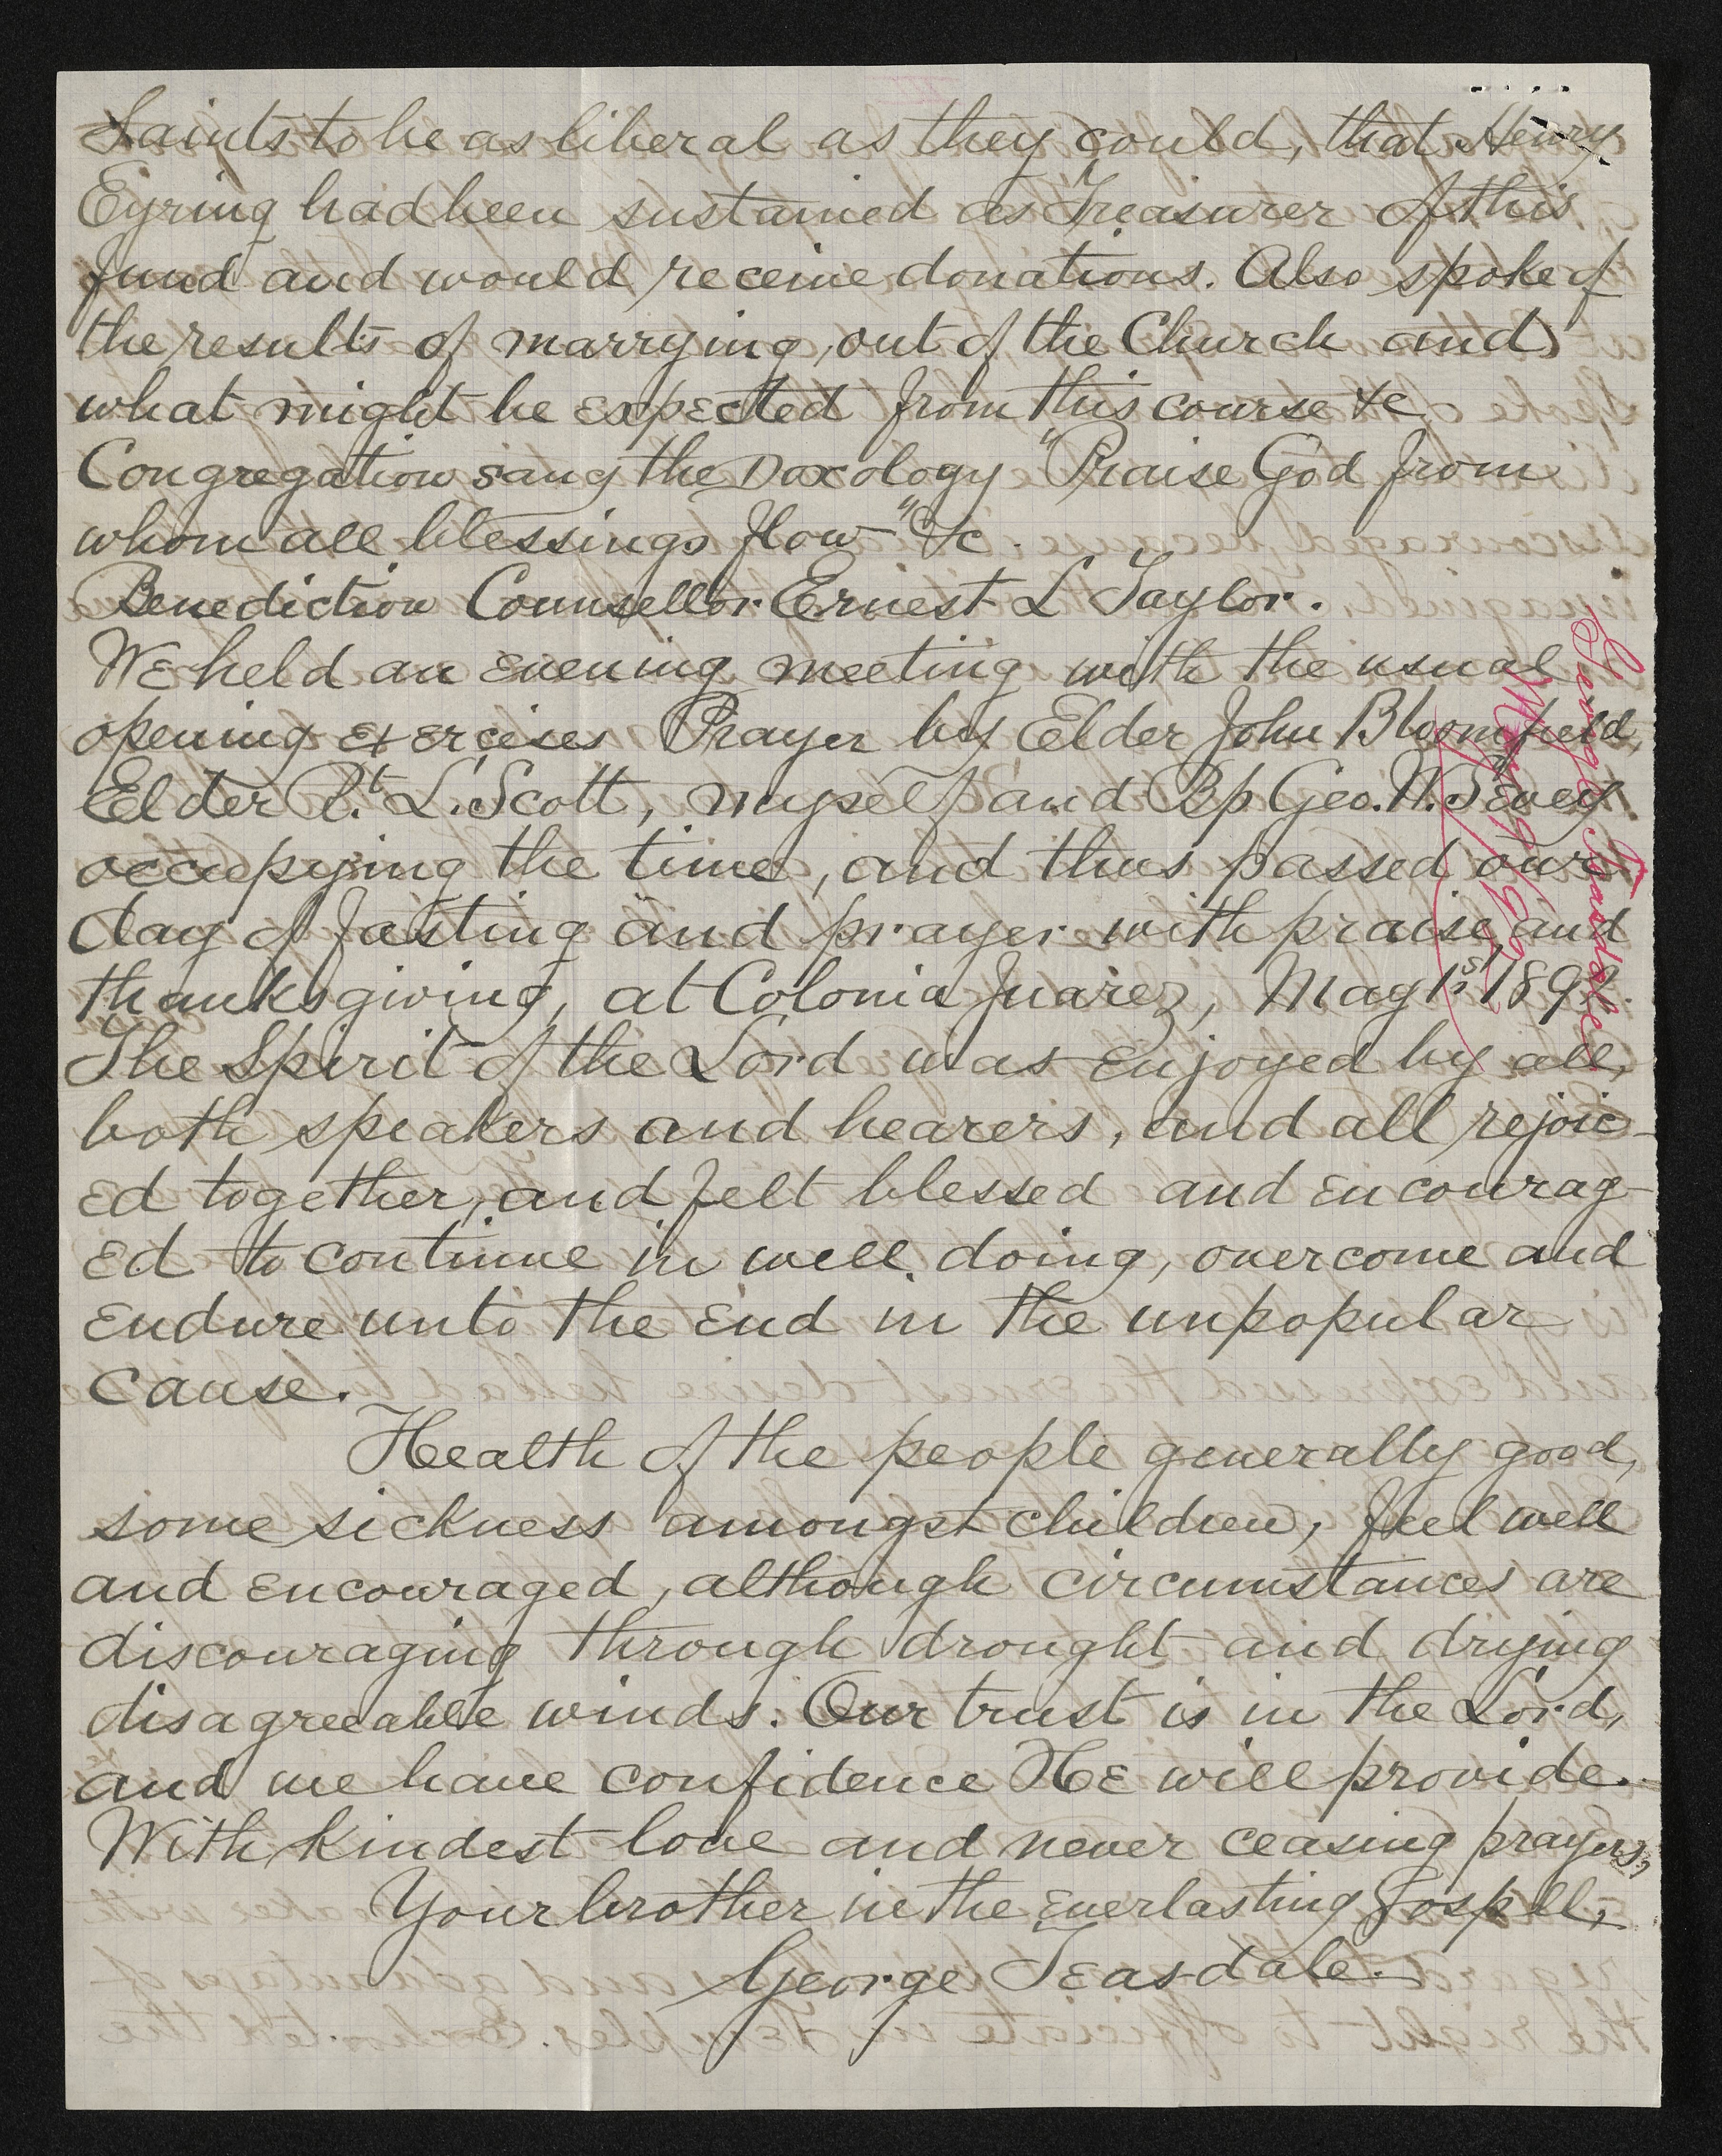 Saints to be as liberal as they could, that Henry
Eyring had been sustained as Treasurer of this
fund and would receive donations. Also spoke of
the results of marrying out of the Church and
what might be expected from this course &c
Congregation sang the Doxology "Praise God from
whom all blessings flow" &c.
Benediction Counsellor Ernest L Taylor.
We held an evening meeting with the usual
opening exercises Prayer by Elder John Bloomfield,
Elder Rt. L. Scott, myself and Bp Geo. W. Sevey
occupying the time, and thus passed our
day of fasting and prayer with praise and
thanksgiving, at Colonia Juarez, May 1st 1892.
The Spirit of the Lord was enjoyed by all,
both speakers and hearers, and all rejoic-
ed together, and felt blessed and encourag-
ed to continue in well doing, overcome and
endure unto the end in the unpopular
cause.
Health of the people generally good,
some sickness amongst children, feel well
and encouraged, although circumstances are
discouraging through drought and drying
disagreeable winds. Our trust is in the Lord,
and we have confidence He will provide.
With kindest love and never ceasing prayers,
Your brother in the everlasting Gospel,
George Teasdale.
George Teasdale
May 9/92